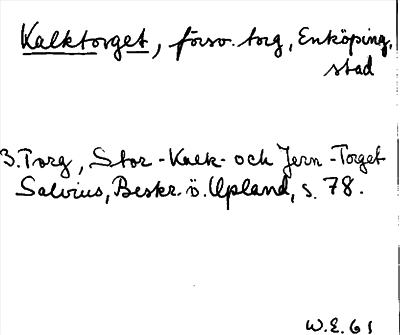 Kalktorget, försv. torg, Enköping,
stad
3. Torg, Stor-Kalk- och Jern-Torget
Salvius, Beskr. ö. Upland, s. 78.
W.E. 61